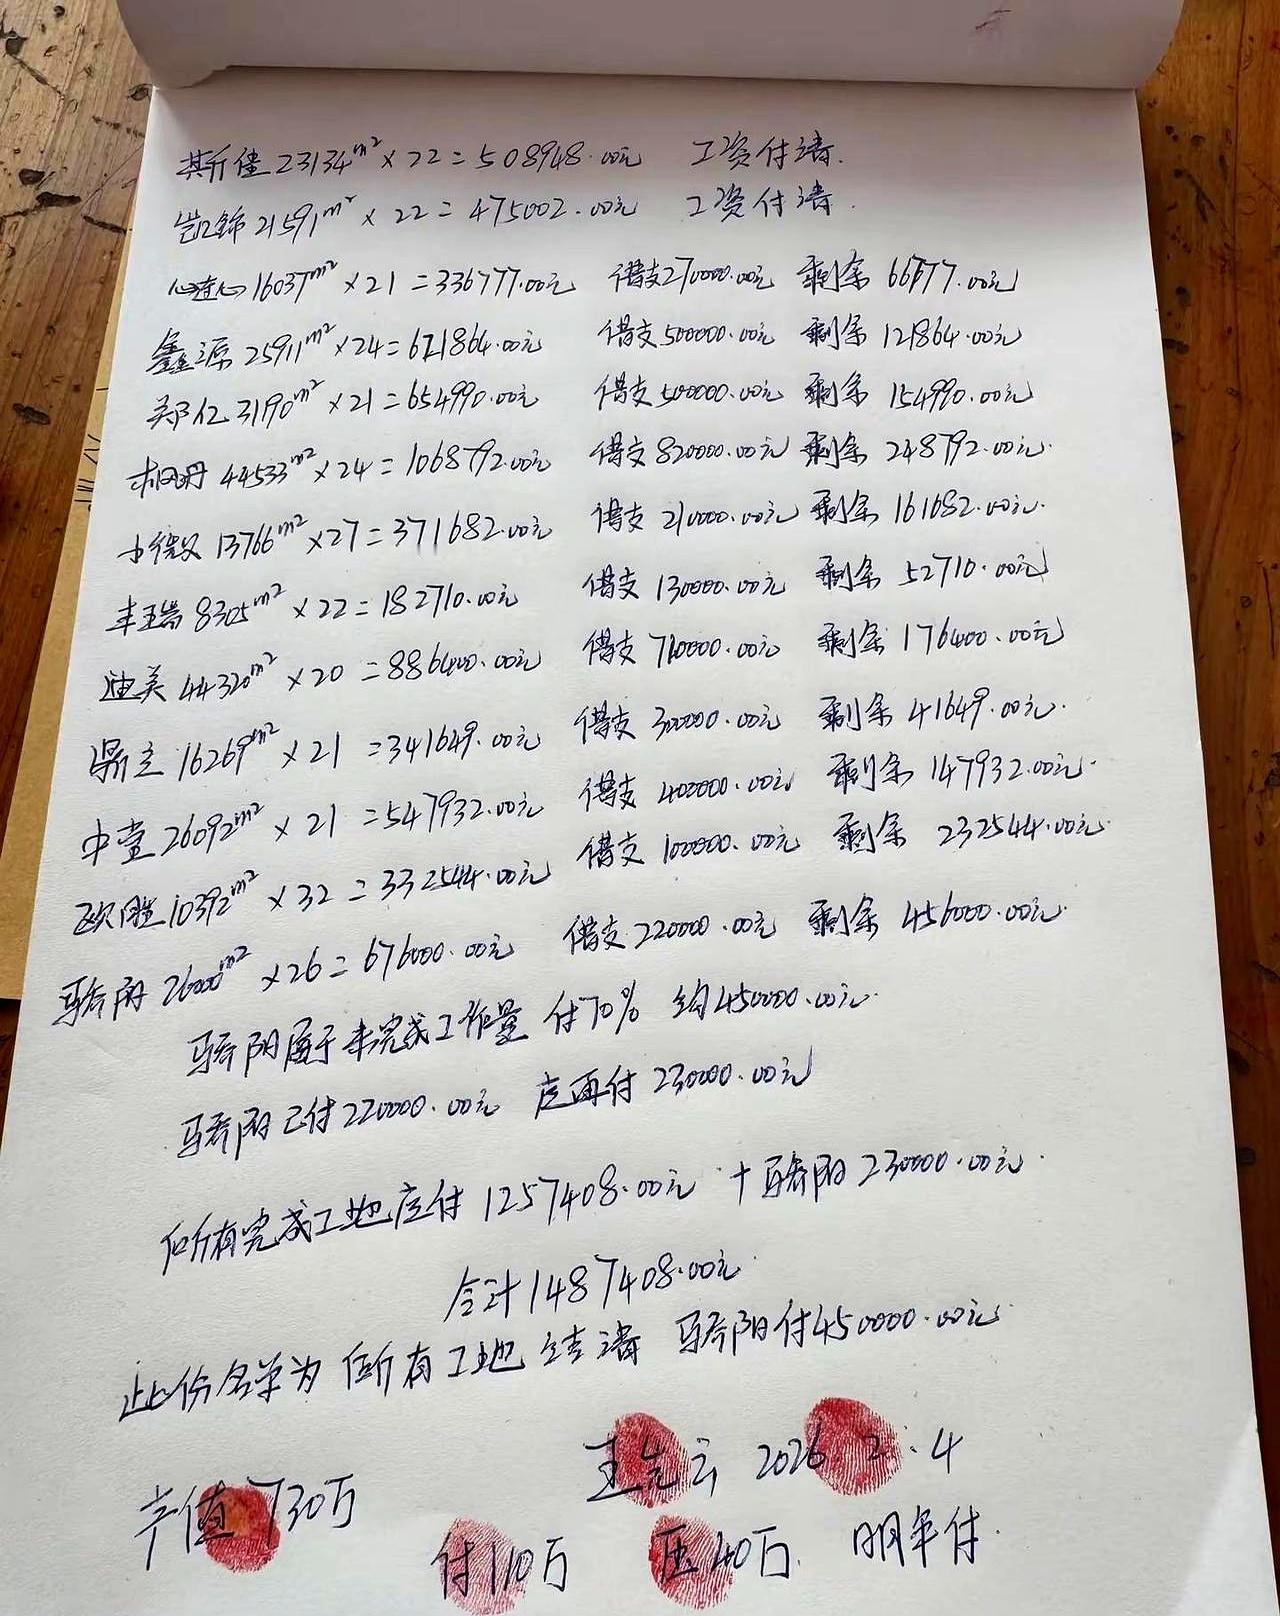 斯佳 23134m² × 22 = 508948.00元 工资付清.
凯锦 21591m² × 22 = 475002.00元 工资付清.
心连心 16037m² × 21 = 336777.00元 借支270000.00元 剩余 66777.00元
鑫源 25911m² × 24 = 621864.00元 借支500000.00元 剩余 121864.00元
郑亿 3190m² × 21 = 654990.00元 借支500000.00元 剩余 154990.00元
44533m² × 24 = 1068792.00元 借支820000.00元 剩余 248792.00元
13766m² × 27 = 371682.00元 借支 210000.00元 剩余 161682.00元
丰瑞 8305m² × 22 = 182710.00元 借支 130000.00元 剩余 52710.00元
迪美 44320m² × 20 = 886400.00元 借支 710000.00元 剩余 176400.00元
鼎立 16269m² × 21 = 341649.00元 借支 300000.00元 剩余 41649.00元
中萱 26092m² × 21 = 547932.00元 借支 400000.00元 剩余 147932.00元
欧胜 10392m² × 32 = 332544.00元 借支 100000.00元 剩余 232544.00元
骄阳 26000m² × 26 = 676000.00元 借支 220000.00元 剩余 456000.00元
骄阳属于未完成工作量 付70% 约450000.00元
骄阳已付220000.00元 应再付 230000.00元
所有完成工地应付 1257408.00元 + 骄阳 230000.00元
合计 1487408.00元
此份名单为所有工地结清 骄阳付450000.00元
王先云 2026.2.4
产值 730万
付110万 压40万 明年付.